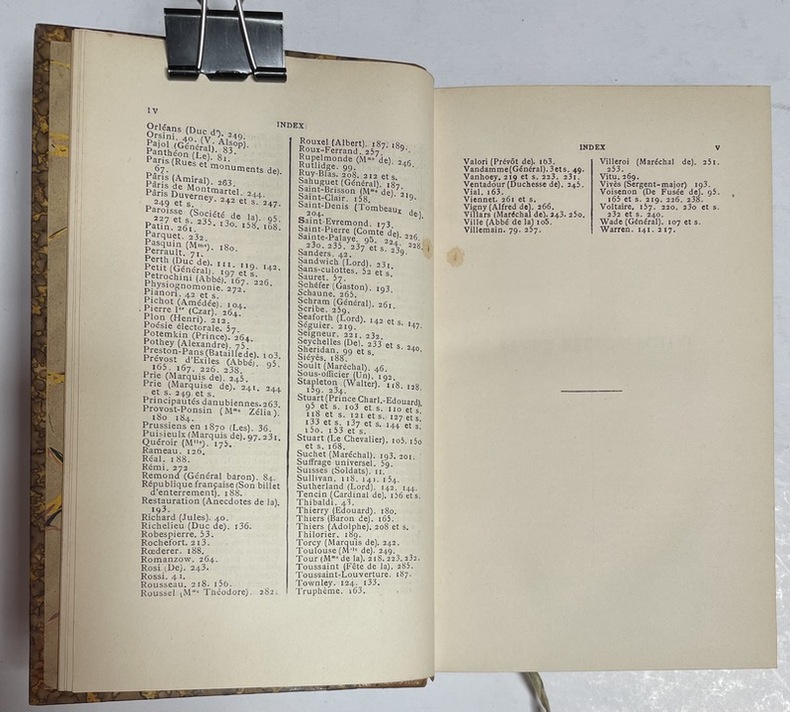 IV
INDEX
Orléans (Duc d'). 249.
Orsini. 40. (V. Alsop).
Pajol (Général). 83.
Panthéon (Le). 81.
Paris (Rues et monuments de).
67.
Pâris (Amiral). 263.
Pâris de Montmartel. 244.
Pâris Duverney. 242 et s. 247.
249 et s.
Paroisse (Société de la). 95.
227 et s. 235. 130. 158. 168.
Patin. 261.
Parquet. 232.
Pasquin (Mme). 180.
Perrault. 71.
Perth (Duc de). 111. 119. 142.
Petit (Général). 197 et s.
Petrochini (Abbé). 167. 226.
Physiognomonie. 272.
Pianori. 42 et s.
Pichot (Amédée). 104.
Pierre Ier (Czar). 264.
Plon (Henri). 212.
Poésie électorale. 57.
Potemkin (Prince). 264.
Pothey (Alexandre). 75.
Preston-Pans (Bataille de). 103.
Prévost d'Exiles (Abbé). 95.
165. 167. 226. 238.
Prie (Marquis de). 245.
Prie (Marquise de). 241. 244
et s. 249 et s.
Principautés danubiennes. 263.
Provost-Ponsin (Mme Zélia).
180 184.
Prussiens en 1870 (Les). 36.
Puisieulx (Marquis de). 97. 231.
Quéroir (Mlle). 175.
Rameau. 126.
Réal. 188.
Rémi. 272
Remond (Général baron). 84.
République française (Son billet
d'enterrement). 188.
Restauration (Anecdotes de la).
193.
Richard (Jules). 40.
Richelieu (Duc de). 136.
Robespierre. 53.
Rochefort. 213.
Rœderer. 188.
Romanzow. 264.
Rosi (De). 243.
Rossi. 41.
Rousseau. 218. 156.
Roussel (Mme Théodore). 282.
Rouxel (Albert). 187. 189.
Roux-Ferrand. 257.
Rupelmonde (Mme de). 246.
Rutlidge. 99.
Ruy-Blas. 208. 212 et s.
Sahuguet (Général). 187.
Saint-Brisson (Mme de). 219.
Saint-Clair. 158.
Saint-Denis (Tombeaux de).
204.
Saint-Evremond. 173.
Saint-Pierre (Comte de). 226.
Sainte-Palaye. 95. 224. 228.
230. 235. 237 et s. 239.
Sanders. 42.
Sandwich (Lord). 231.
Sans-culottes. 52 et s.
Sauret. 57.
Schéfer (Gaston). 193.
Schaune. 265.
Schram (Général). 261.
Scribe. 259.
Seaforth (Lord). 142 et s. 147.
Séguier. 219.
Seigneur. 221. 232.
Seychelles (De). 233 et s. 240.
Sheridan. 99 et s.
Siéyès. 188.
Soult (Maréchal). 46.
Sous-officier (Un). 192.
Stapleton (Walter). 118. 128.
159. 234.
Stuart (Prince Charl.-Edouard).
95 et s. 103 et s. 110 et s.
118 et s. 121 et s. 127 et s.
133 et s. 137 et s. 144 et s.
150. 153 et s.
Stuart (Le Chevalier). 105. 150
et s. 168.
Suchet (Maréchal). 193. 201.
Suffrage universel. 59.
Suisses (Soldats). 11.
Sullivan. 118. 141. 154.
Sutherland (Lord). 142. 144.
Tencin (Cardinal de). 156 et s.
Thibaldi. 43.
Thierry (Edouard). 180.
Thiers (Baron de). 165.
Thiers (Adolphe). 208 et s.
Thilorier. 189.
Torcy (Marquis de). 242.
Toulouse (Mlle de). 249.
Tour (Mme de la). 218. 223. 232.
Toussaint (Fête de la). 285.
Toussaint-Louverture. 187.
Townley. 124. 133.
Truphème. 163.
INDEX
V
Valori (Prévôt de). 163.
Vandamme (Général). 3 et s. 49.
Vanhoey. 219 et s. 223. 231.
Ventadour (Duchesse de). 245.
Vial. 163.
Viennet. 261 et s.
Vigny (Alfred de). 266.
Villars (Maréchal de). 243. 250.
Ville (Abbé de la) 105.
Villemain. 79. 257.
Villeroi (Maréchal de). 251.
253.
Vitu. 269.
Vivès (Sergent-major) 193.
Voisenon (De Fusée de). 95.
165 et s. 219. 226. 238.
Voltaire. 157. 220. 230 et s.
232 et s. 240.
Wade (Général). 107 et s.
Warren. 141. 217.